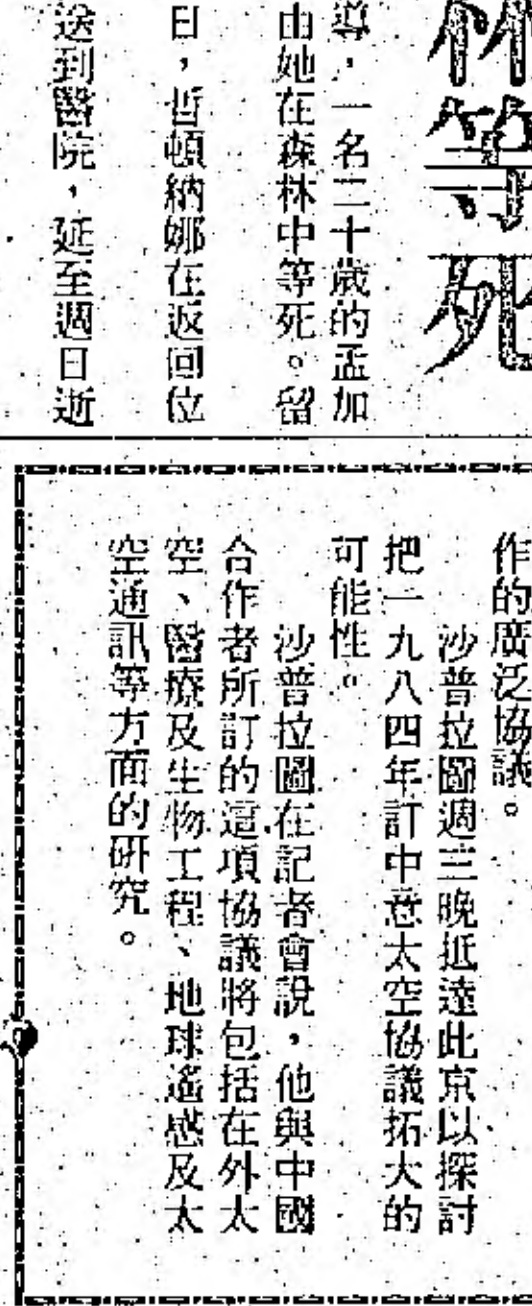 林等死
導，一名二十歲的孟加
由她在森林中等死。留
日，哲頓納娜在返回位
送到醫院，延至週日逝
作的廣泛協議。
沙普拉圖週三晚抵達此京以探討
把一九八四年訂中意太空協議拓大的
可能性。
沙普拉圖在記者會說，他與中國
合作者所訂的這項協議將包括在外太
空、醫療及生物工程、地球遙感及太
空通訊等方面的研究。